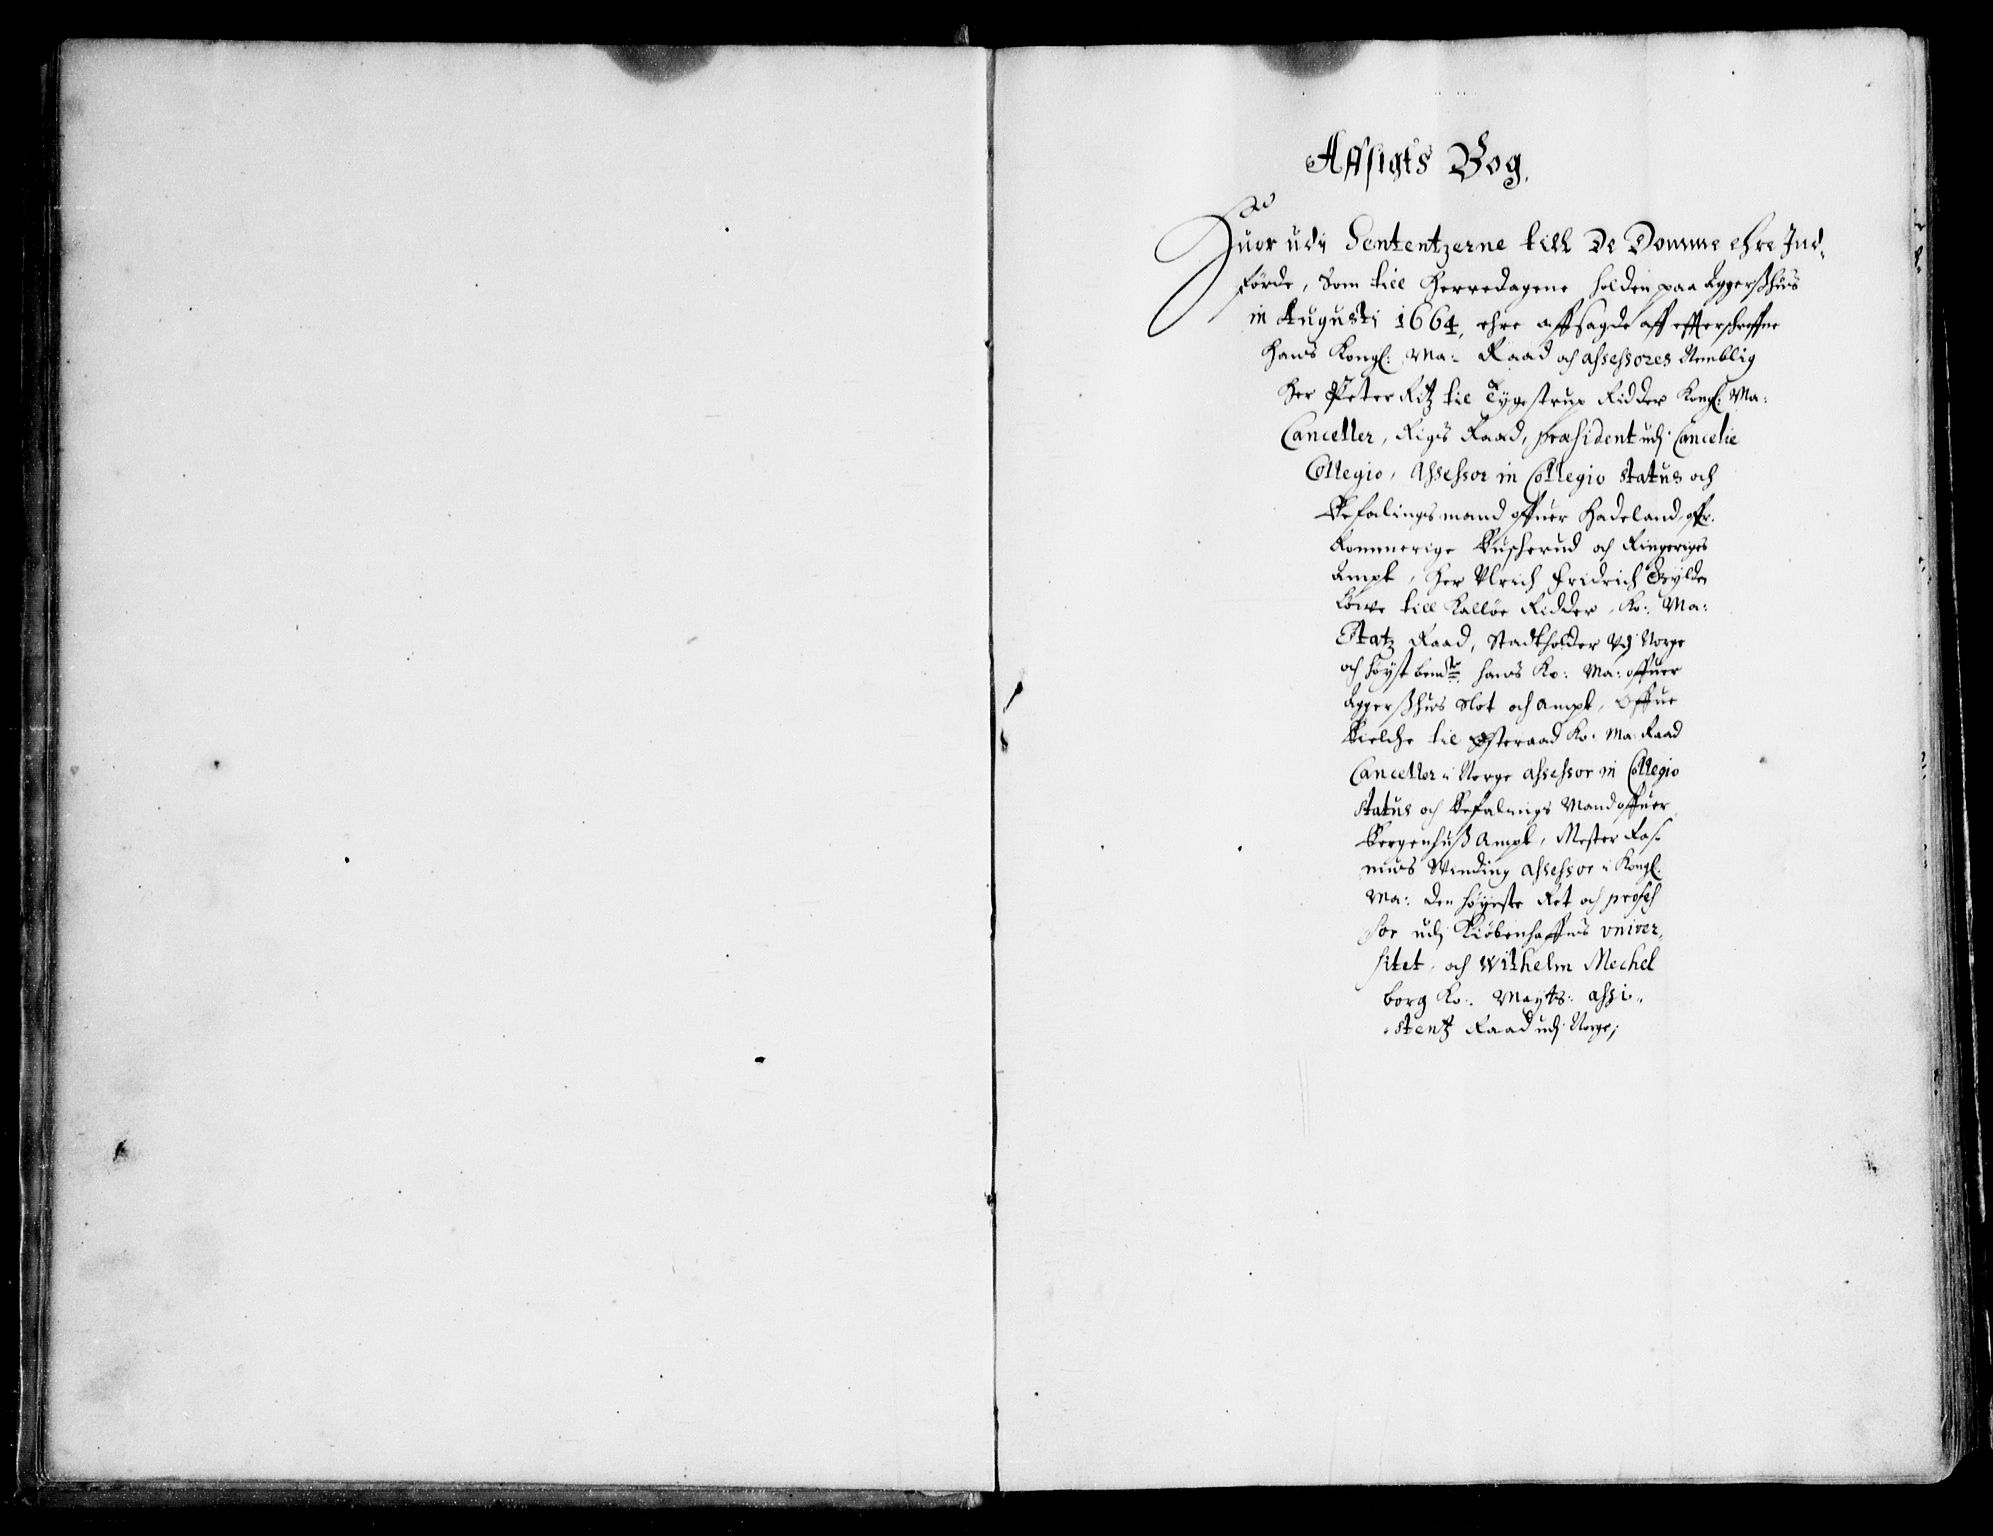 Affsigts Bog.
Huor udi Sententzerne till De Domme ehre Ind-
förde, Som till Herredagene holden paa Aggerßhuus
in Augusti 1664, ehre affsagde aff effterschreffne
Hans Kongl: Ma: Raad och Assessores Nemblig
Her Peter Ritz til Tygestrup Ridder Kongl: Ma:
Canceller, Rigs Raad, præsident udj Cancelie
Collegio, Assessor in Collegio status och
Befalingsmand offuer Hadeland, offr:
Rommerige Buscherud och Ringeriges
Ampt, Her Vlrich Fridrich Gylden
Löwe till Kalløe Ridder, Ko: Ma:
Etatz Raad, Stadtholder Vdj Norge
och höyst bemte hans Ko: Ma: offuer
Aggerßhuus Slot och Ampt, Offue
Bielche til Østeraad Ko: Ma: Raad
Canceller i Norge Assessor in Collegio
status och Befalings Mand offuer
Bergenhuß Ampt, Mester Ras-
muus Winding Assessor i Kongl.
Ma: Den höyeste Ret och profes
sor udj Kiöbenhaffns vniver-
sitet, och Wilhelm Mechel
borg Ko: Mayts: assi-
stentz Raad udj Norge;